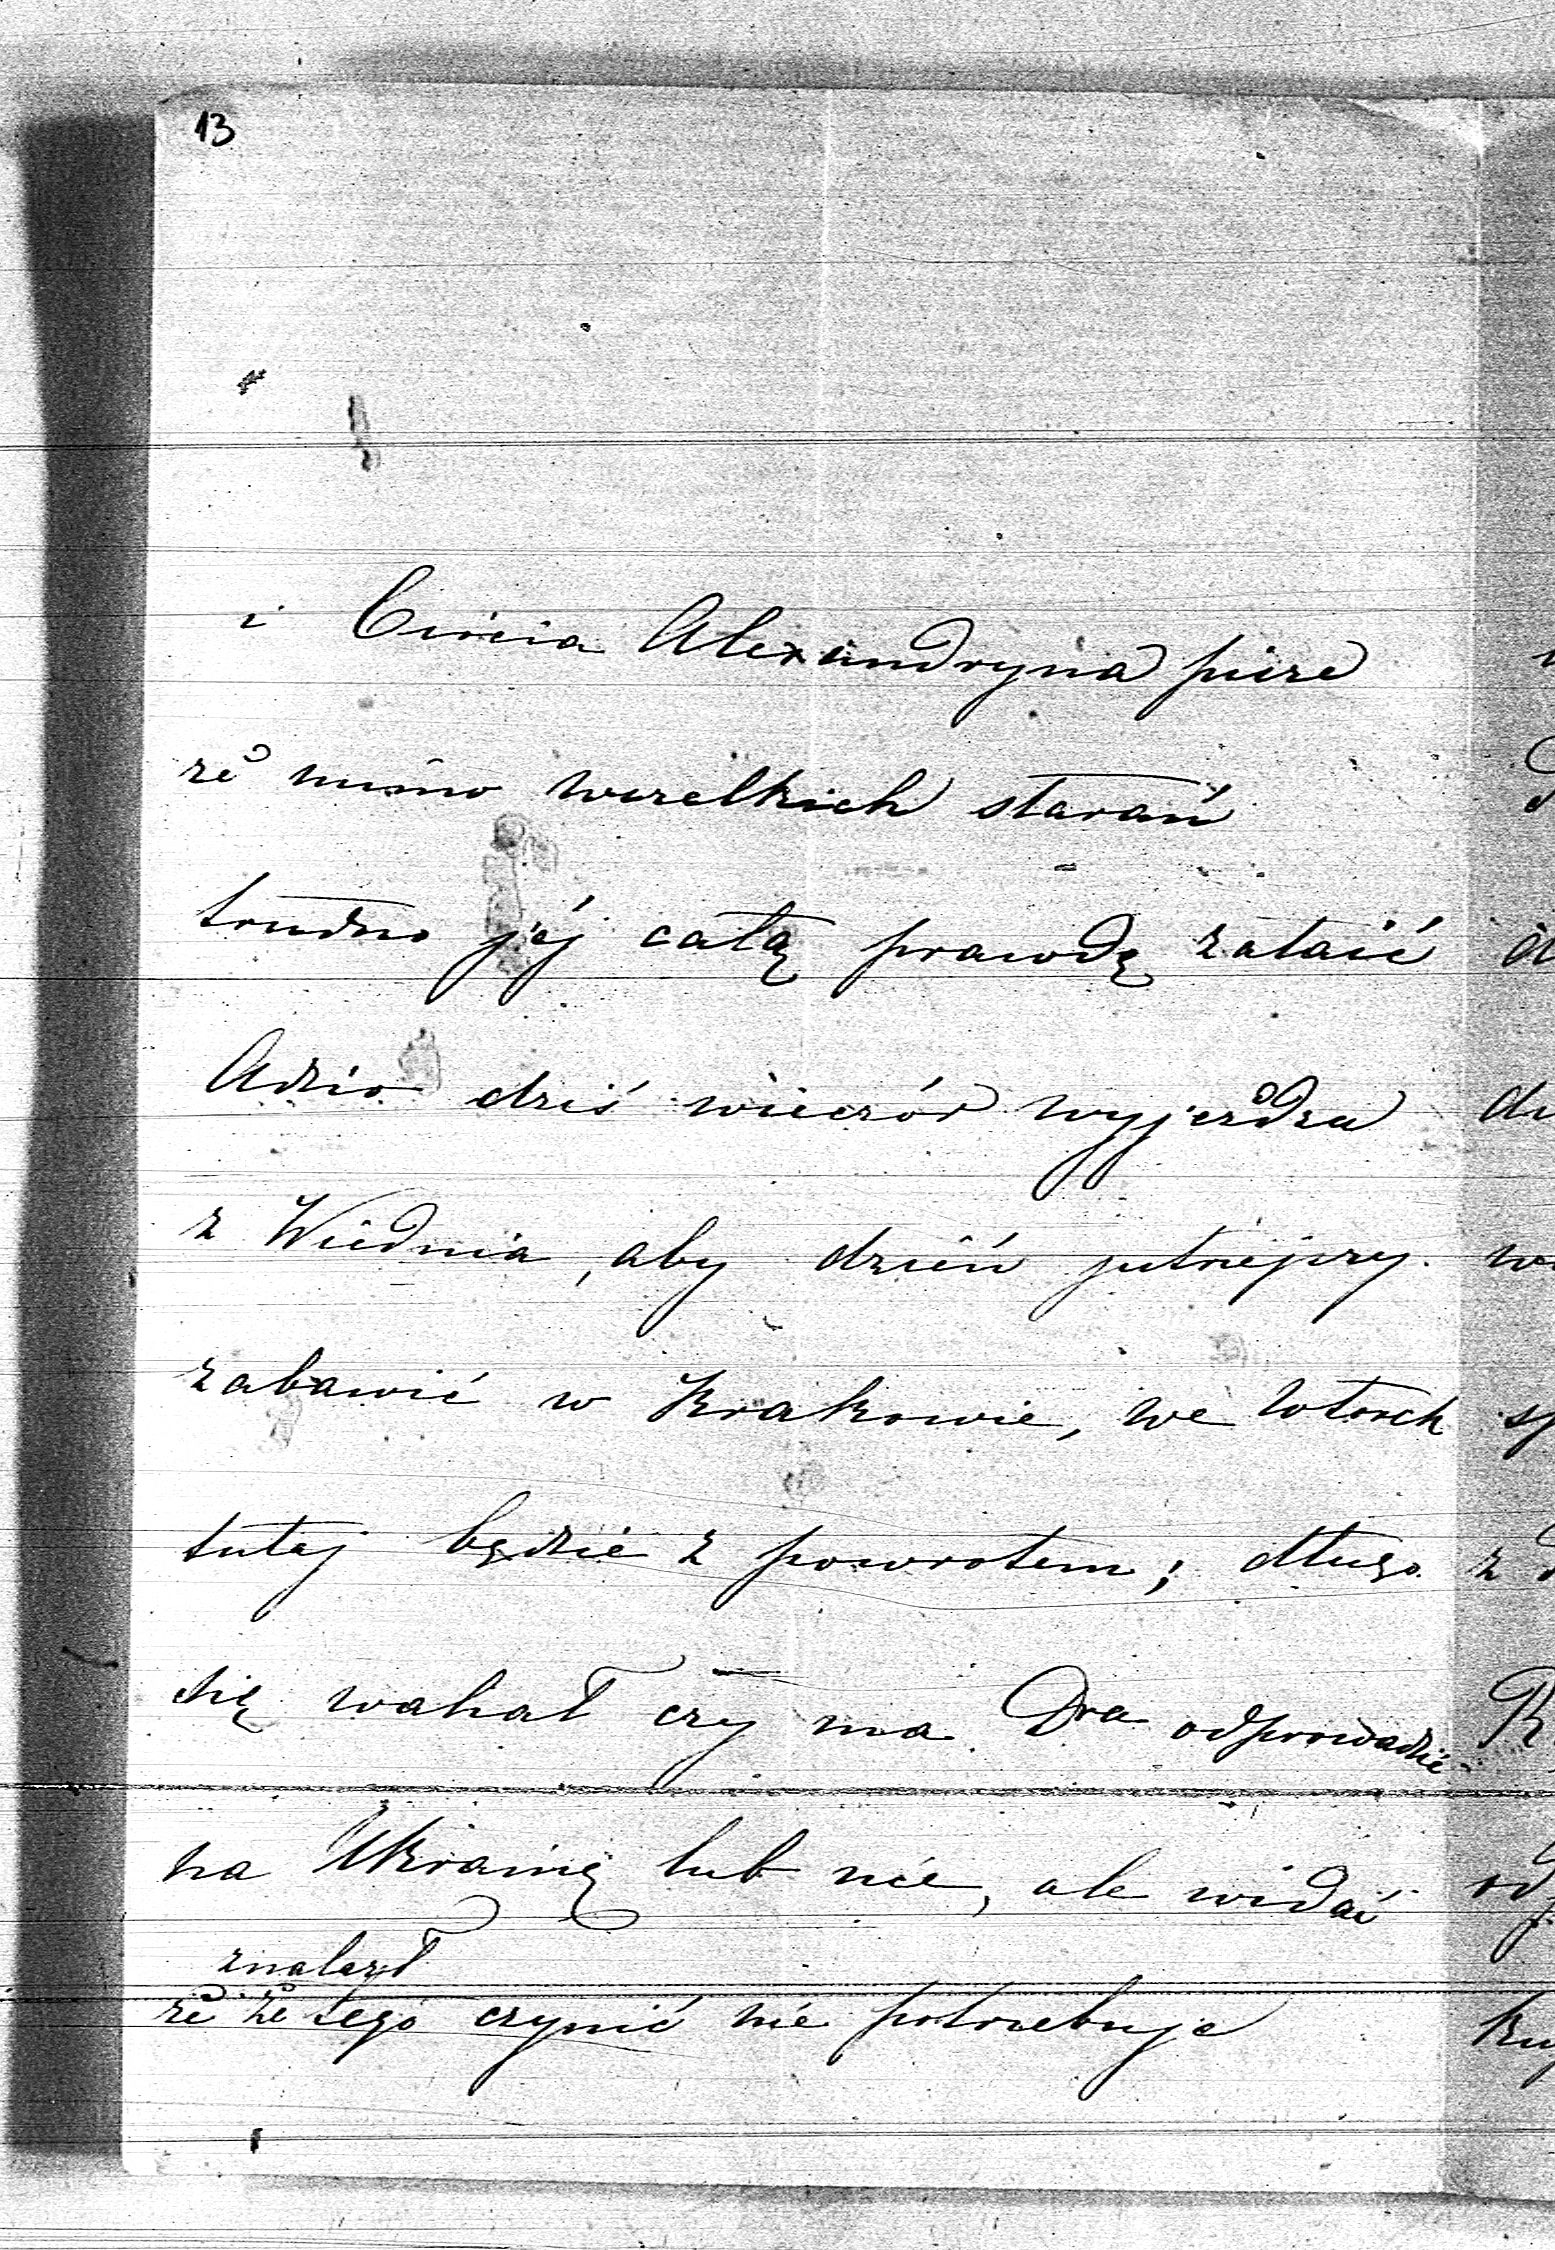 13
i Ciocia Alexandryna pisze
że mimo wszelkich starań
trudno jéj całą prawdę zataić
Adzio dziś wieczór wyjeżdza
z Wiednia, aby dzień jutrejszy
zabawić w Krakowie, we wtorek
tutaj będzie z powrotem; długo
się wahał czy ma Dra odprowadzić
na Ukrainę lub nie, ale widać
znalazł
że że tego czynić nie potrzebuje